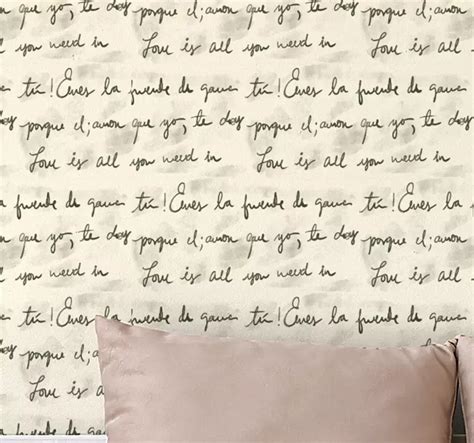 que yo, te doy porque el;amor que yo, te doy porque
you need in Love is all you need in Love is all
tú! Eres la fuente de tú! Eres la fuente de
doy porque el;amor que yo, te doy porque el;amor que yo, te doy
Love is all you need in Love is all you need in
fuente de tú! Eres la fuente de tú! Eres
que yo, te doy porque el;amor que yo, te doy porque el;amor
you need in Love is all you need in Love is all
tú! Eres la fuente de tú! Eres la fuente de
porque
Love is all